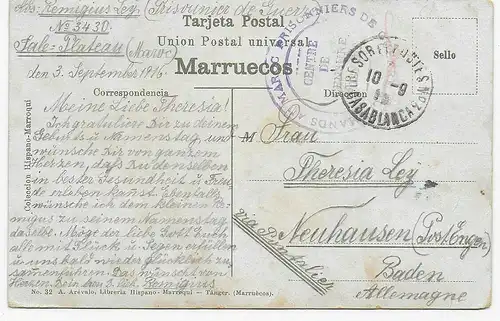 Abs: Remigius Ley (Prisonnier de Guerre)
Nº 3430
Tarjeta Postal
Union Postal universal
Salé-Plateau (Maroc)
Marruecos
Sello
den 3. September 1916.
Correspondencia
Direccion
MAROC PRISONNIERS DE
CENTRE
DE
TRESOR ET POSTES Nº
10-9
16
CASABLANCA
Meine Liebe Theresia!
Ich gratuliere Dir zu deinem
Geburts u. Namenstag, und
wünsche Dir von ganzem
Herzen, daß Du denselben
in bester Gesundheit u. Freu
de erleben kannst. Ebenfalls
wünsche ich dem kleinen Re
migius zu seinem Namenstag
dasselbe. Möge der liebe Gott Euch
alle mit Glück u. Segen erfüllen
u uns bald wieder glücklich zu
sammenführen. Das wünscht von
Herzen Dein Remigius
M Frau
Theresia Ley
Neuhausen (Post Engen)
Baden
Allemagne
via Pontarlier
Coleccion Hispano-Marroqui
No. 32 A. Arévalo, Libreria Hispano-Marroqui - Tánger. (Marruecos)